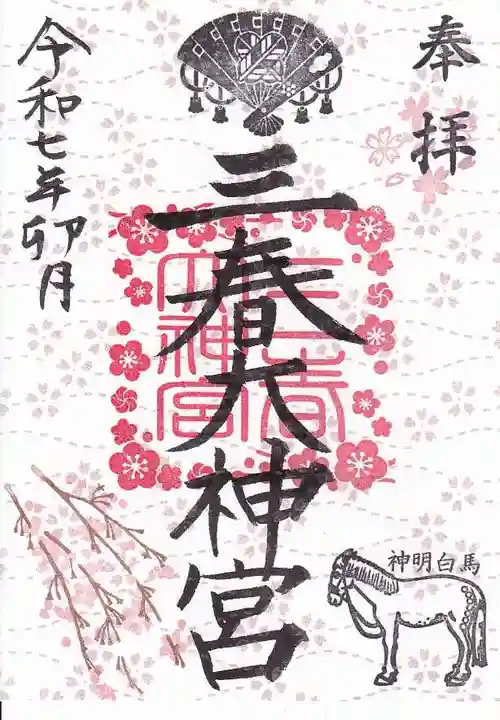 奉拝
三春大神宮
三春大神宮
令和七年卯月
神明白馬